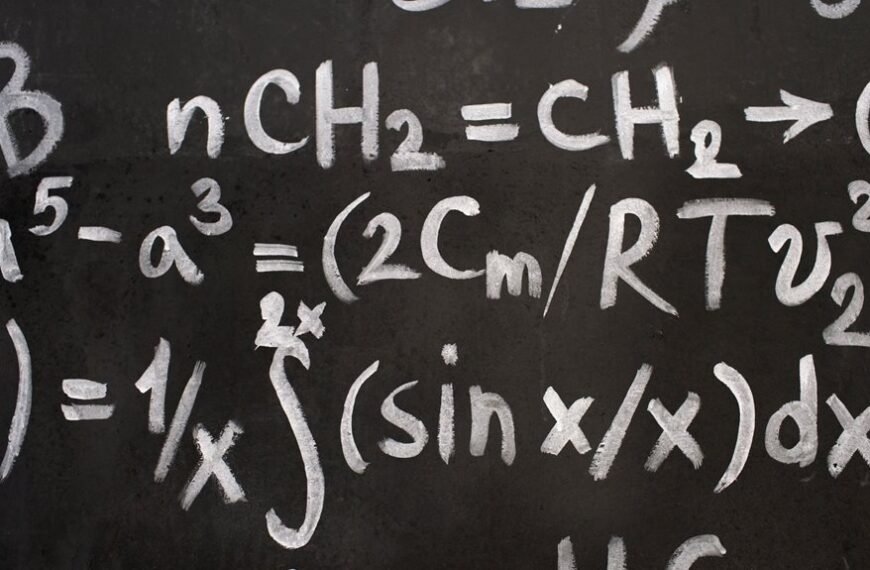 B nCH₂ = CH₂ → (
a⁵ - a³ = (2Cm/RTv₂²
) = 1/x ∫²ˣ (sin x/x)dx